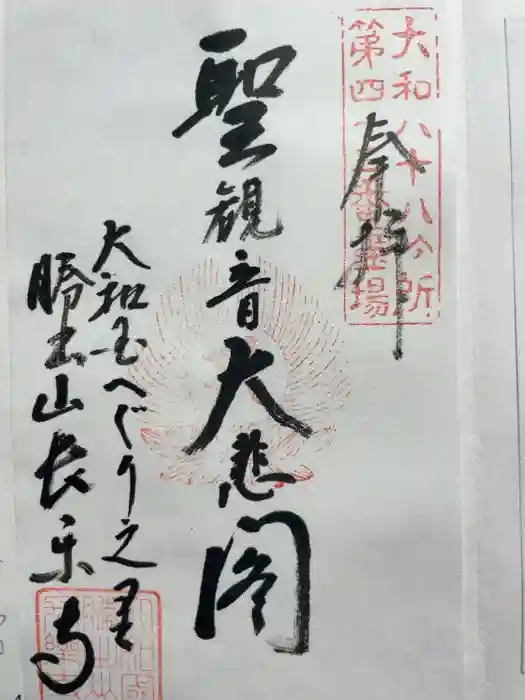 大和八十八ヶ所
第四十番霊場
奉拝
聖観音大悲閣
大和国へぐり之里
勝五山長楽寺